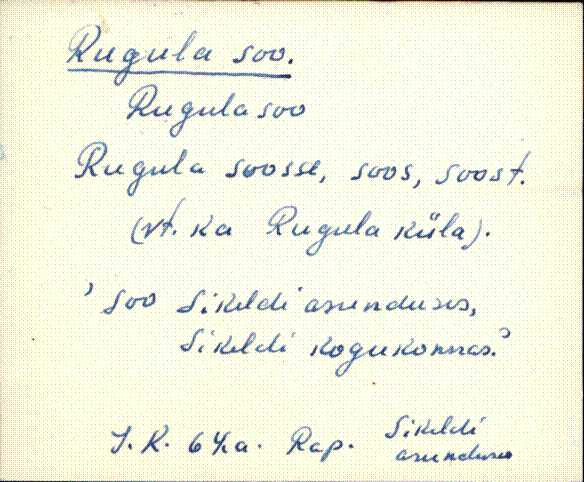 Rugula soo.
Rugula soo
Rugula soosse, soos, soost.
(vt. ka Rugula küla).
'soo Sikeldi asunduses,
Sikeldi kogukonnas.'
J. K. 64 a. Rap. Sikeldi
asunduses